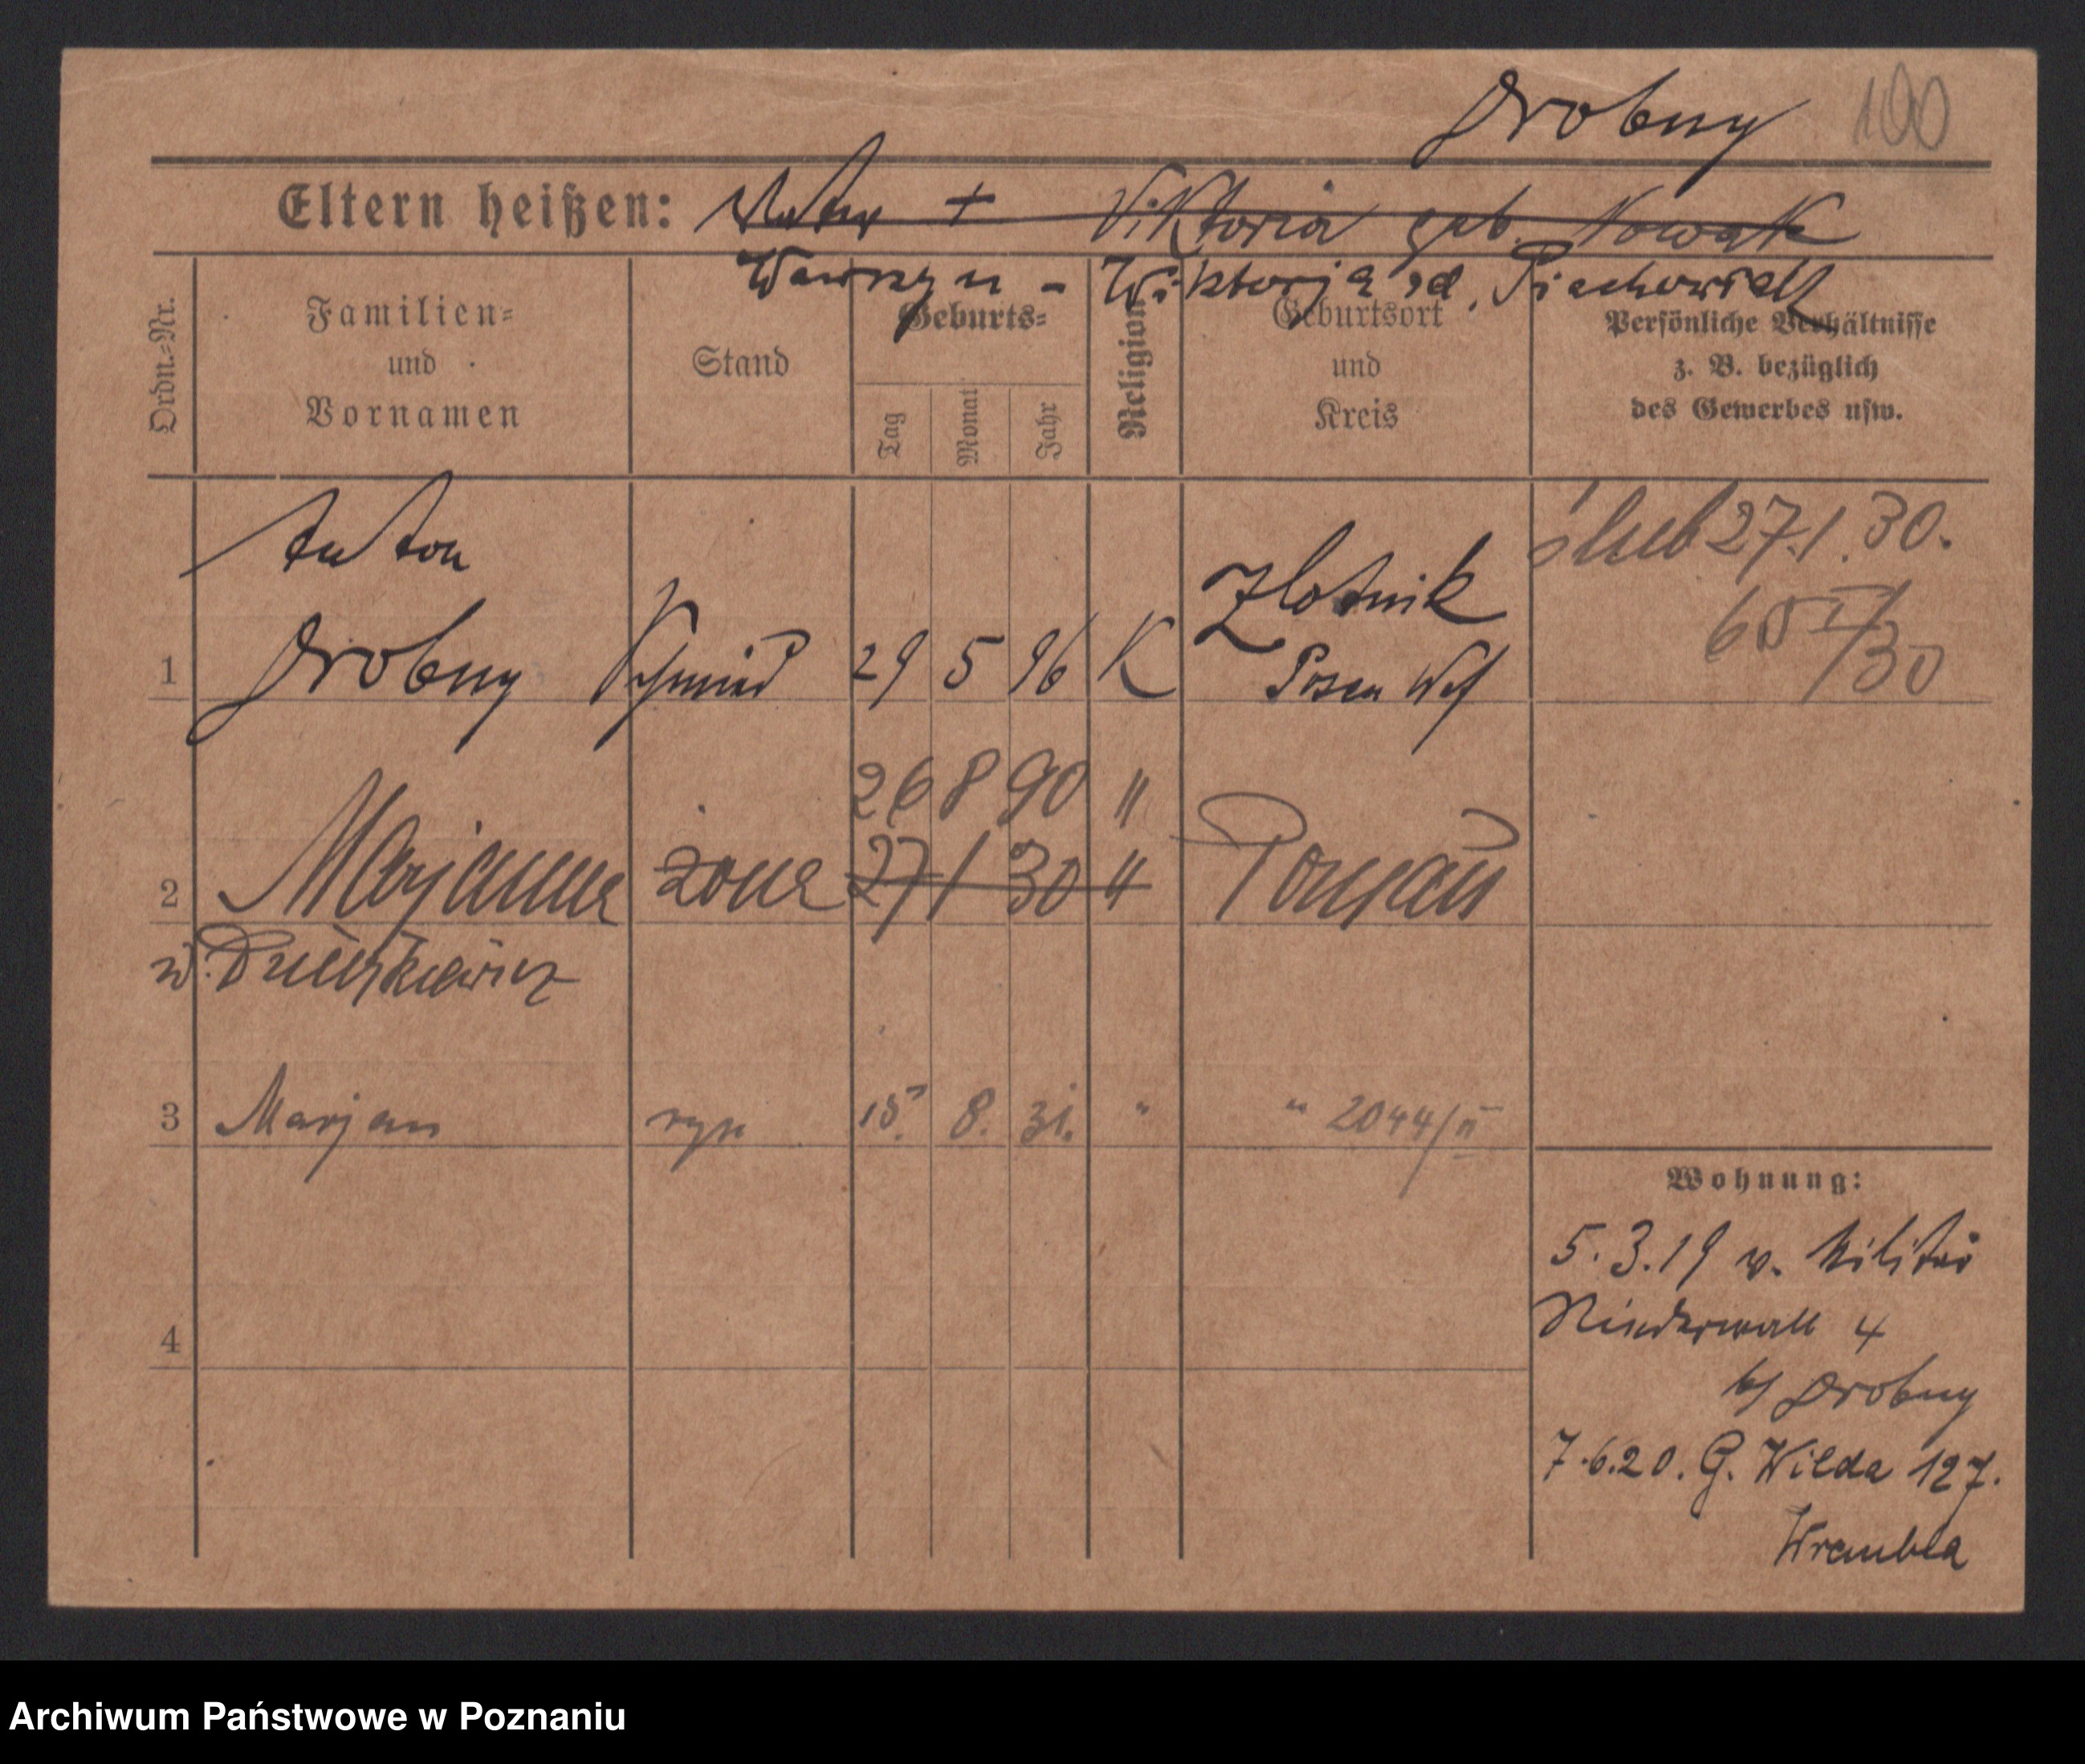 Drobny 100
Eltern heißen: Vater + Viktoria geb. Nowak
Wawrzyn - Wiktorja rd. Piechowiak
Ordn.-Nr.
Familien- und Vornamen
Stand
Geburts-
Tag
Monat
Jahr
Religion
Geburtsort und Kreis
Persönliche Verhältnisse
z. B. bezüglich
des Gewerbes usw.
Anton ślub 27.1.30.
Zlotnik 605 I/30
1 Drobny Schmied 29 5 96 K Posen West
26 8 90 "
2 Marjanna żona 27 1 30 " Poznań
w.
3 Marjan syn 15. 8. 31. " " 2044/II
Wohnung:
5.3.19 v. Militär
Niederwall 4
b/ Drobny
4
7.6.20. G. Wilda 127.
Wrembla
Archiwum Państwowe w Poznaniu